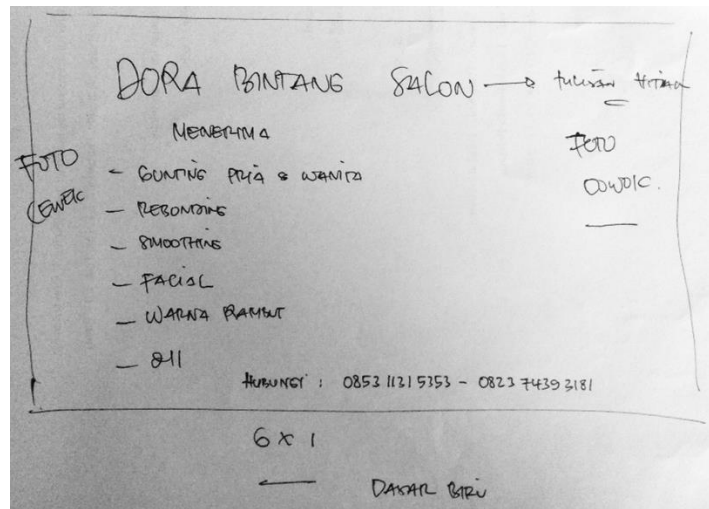 DORA BINTANG SALON → tulisan Hitam
MENERIMA
FOTO CEWEK
FOTO COWOK.
- GUNTING PRIA & WANITA
- REBONDING
- SMOOTHING
- FACIAL
- WARNA RAMBUT
- dll
HUBUNGI : 0853 11215353 - 0823 7439 3181
6 x 1
DASAR BIRU